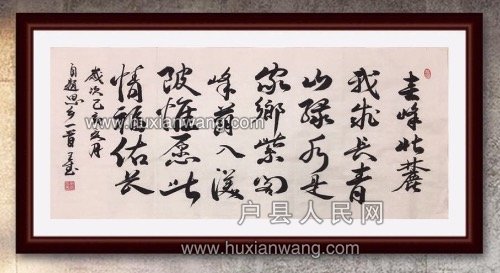 圭峰北麓
我成长青
山绿水是
家鄉紫阁
峰前入渼
陂惟愿此
情佑长
岁次己亥月
自题思乡一首
www.huxianwang.com
户县人民网
www.huxianwang.com